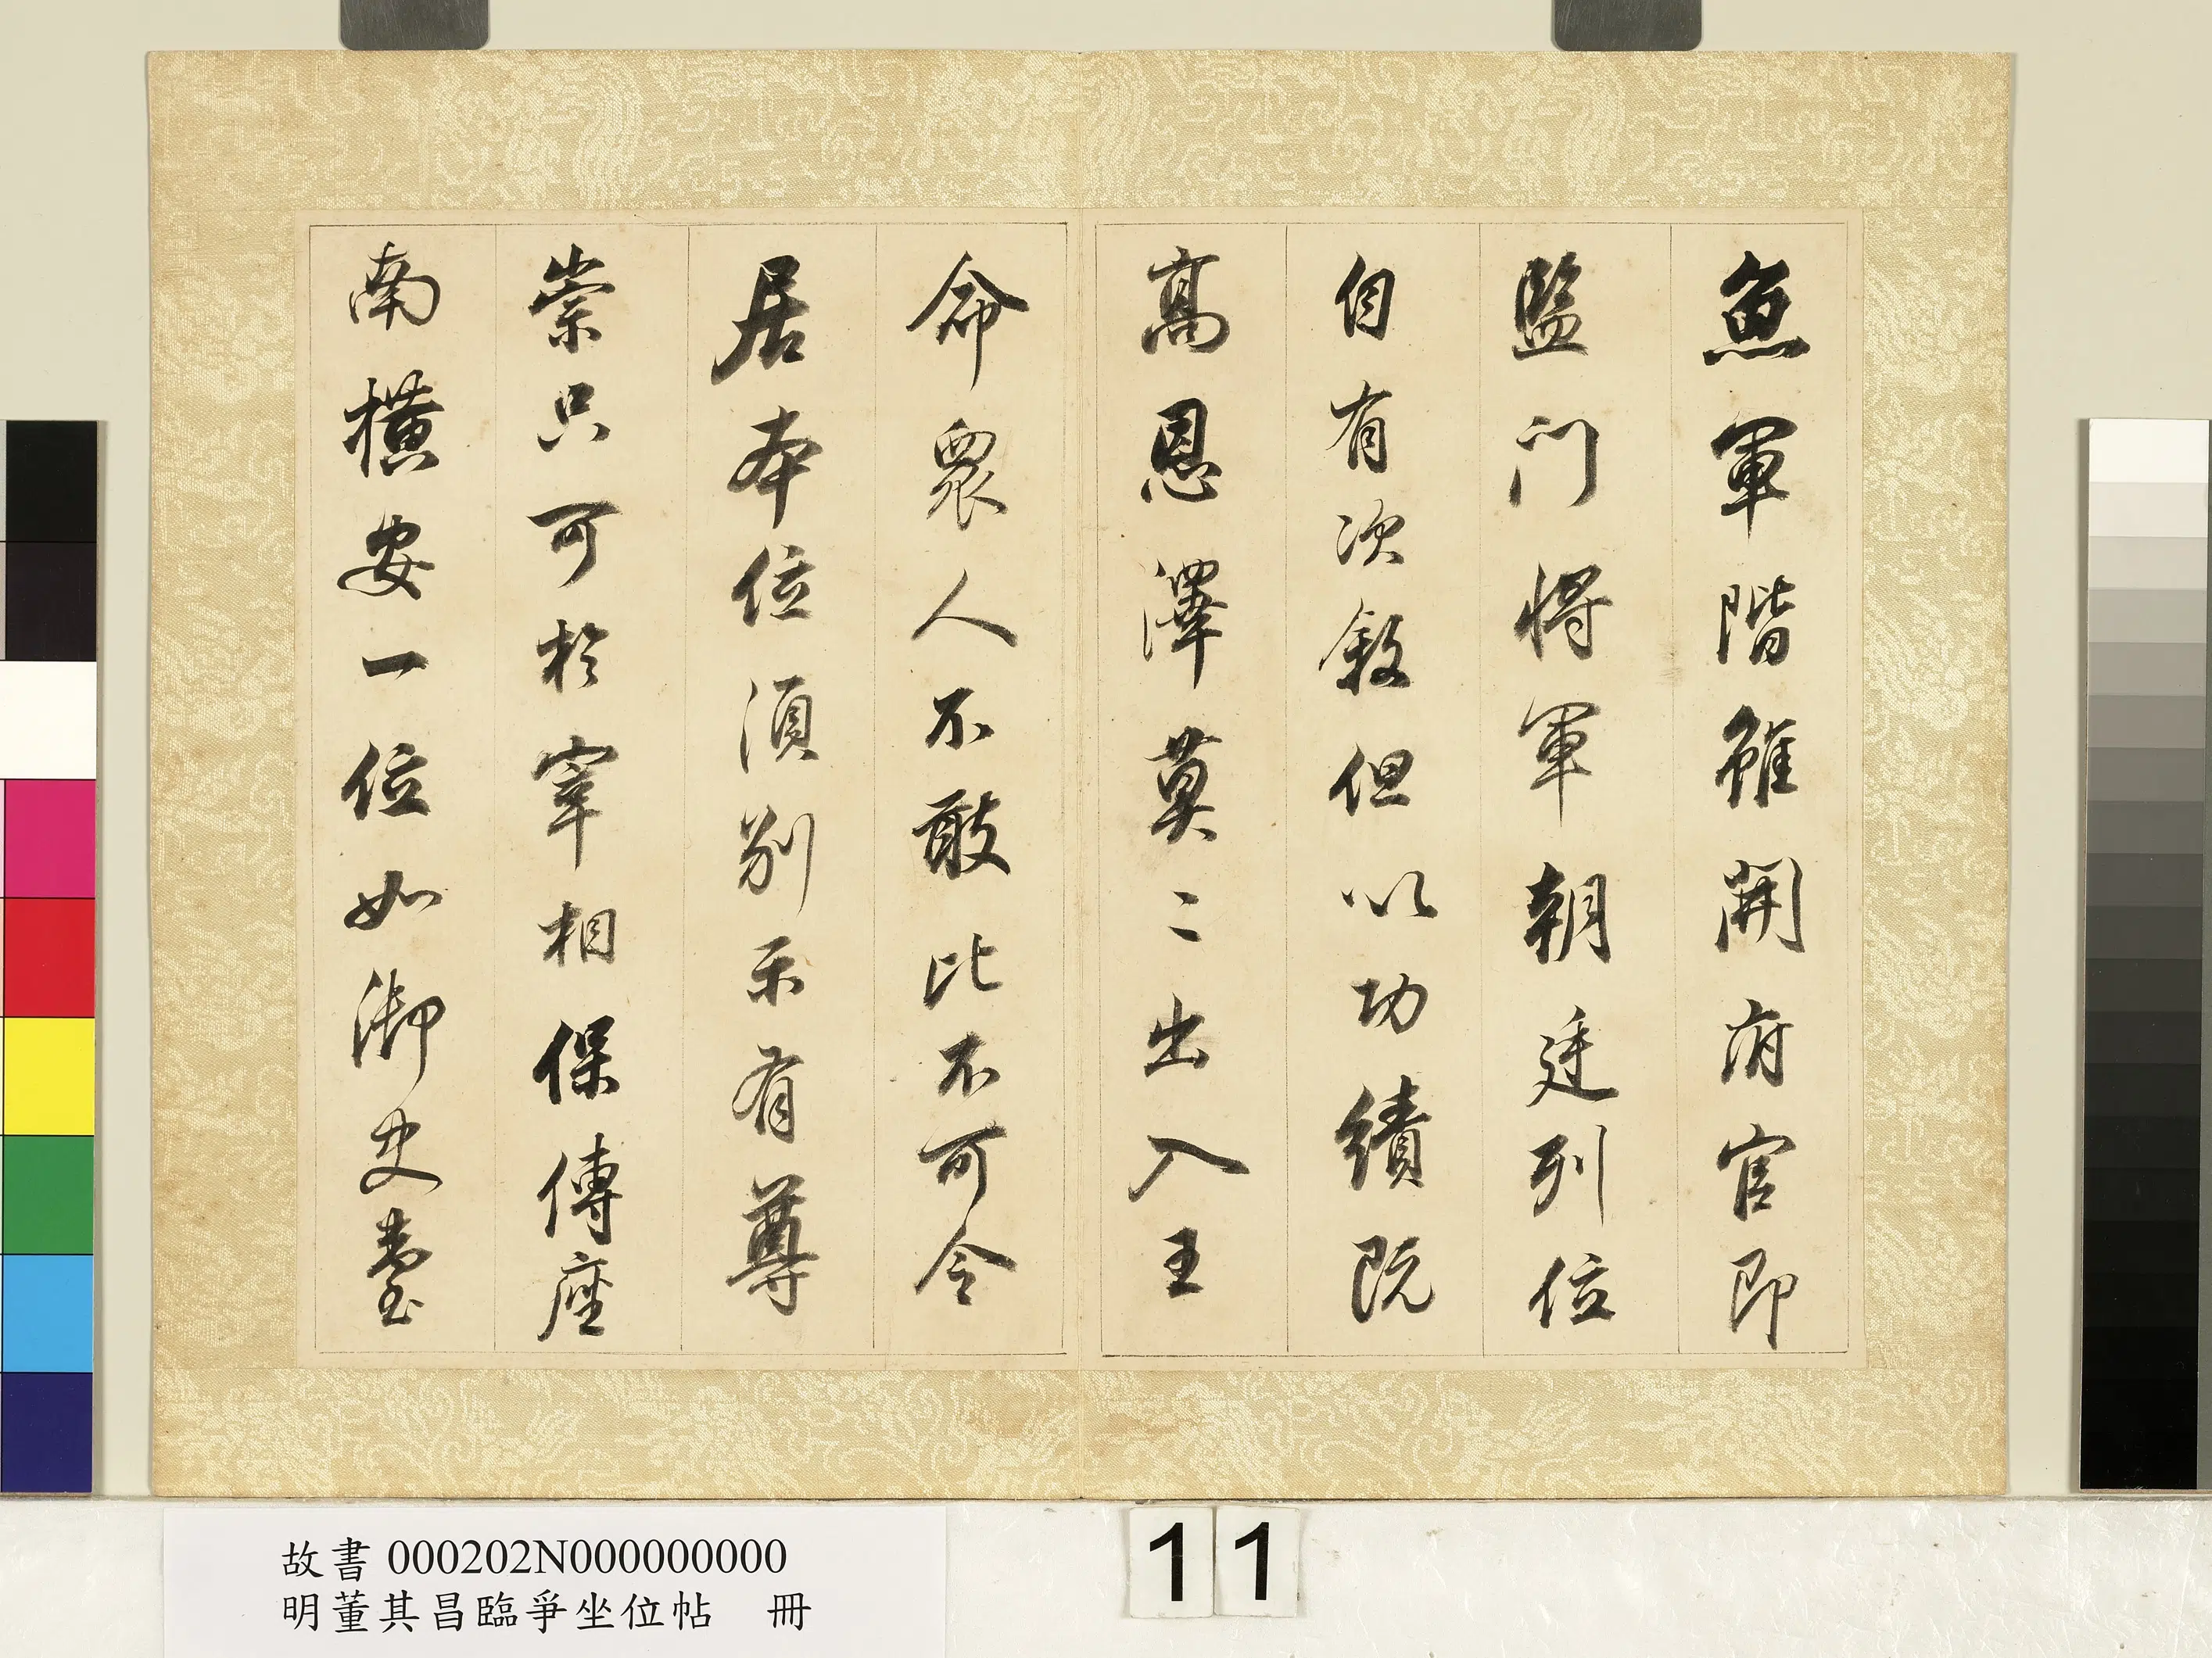 魚軍階雖開府官即
監門將軍朝廷列位
自有次敘但以功績既
高恩澤莫二出入王
命眾人不敢比不可令
居本位須別示有尊
崇只可於宰相保傅座
南橫安一位如御史臺
故書000202N000000000
明董其昌臨爭坐位帖 冊
11